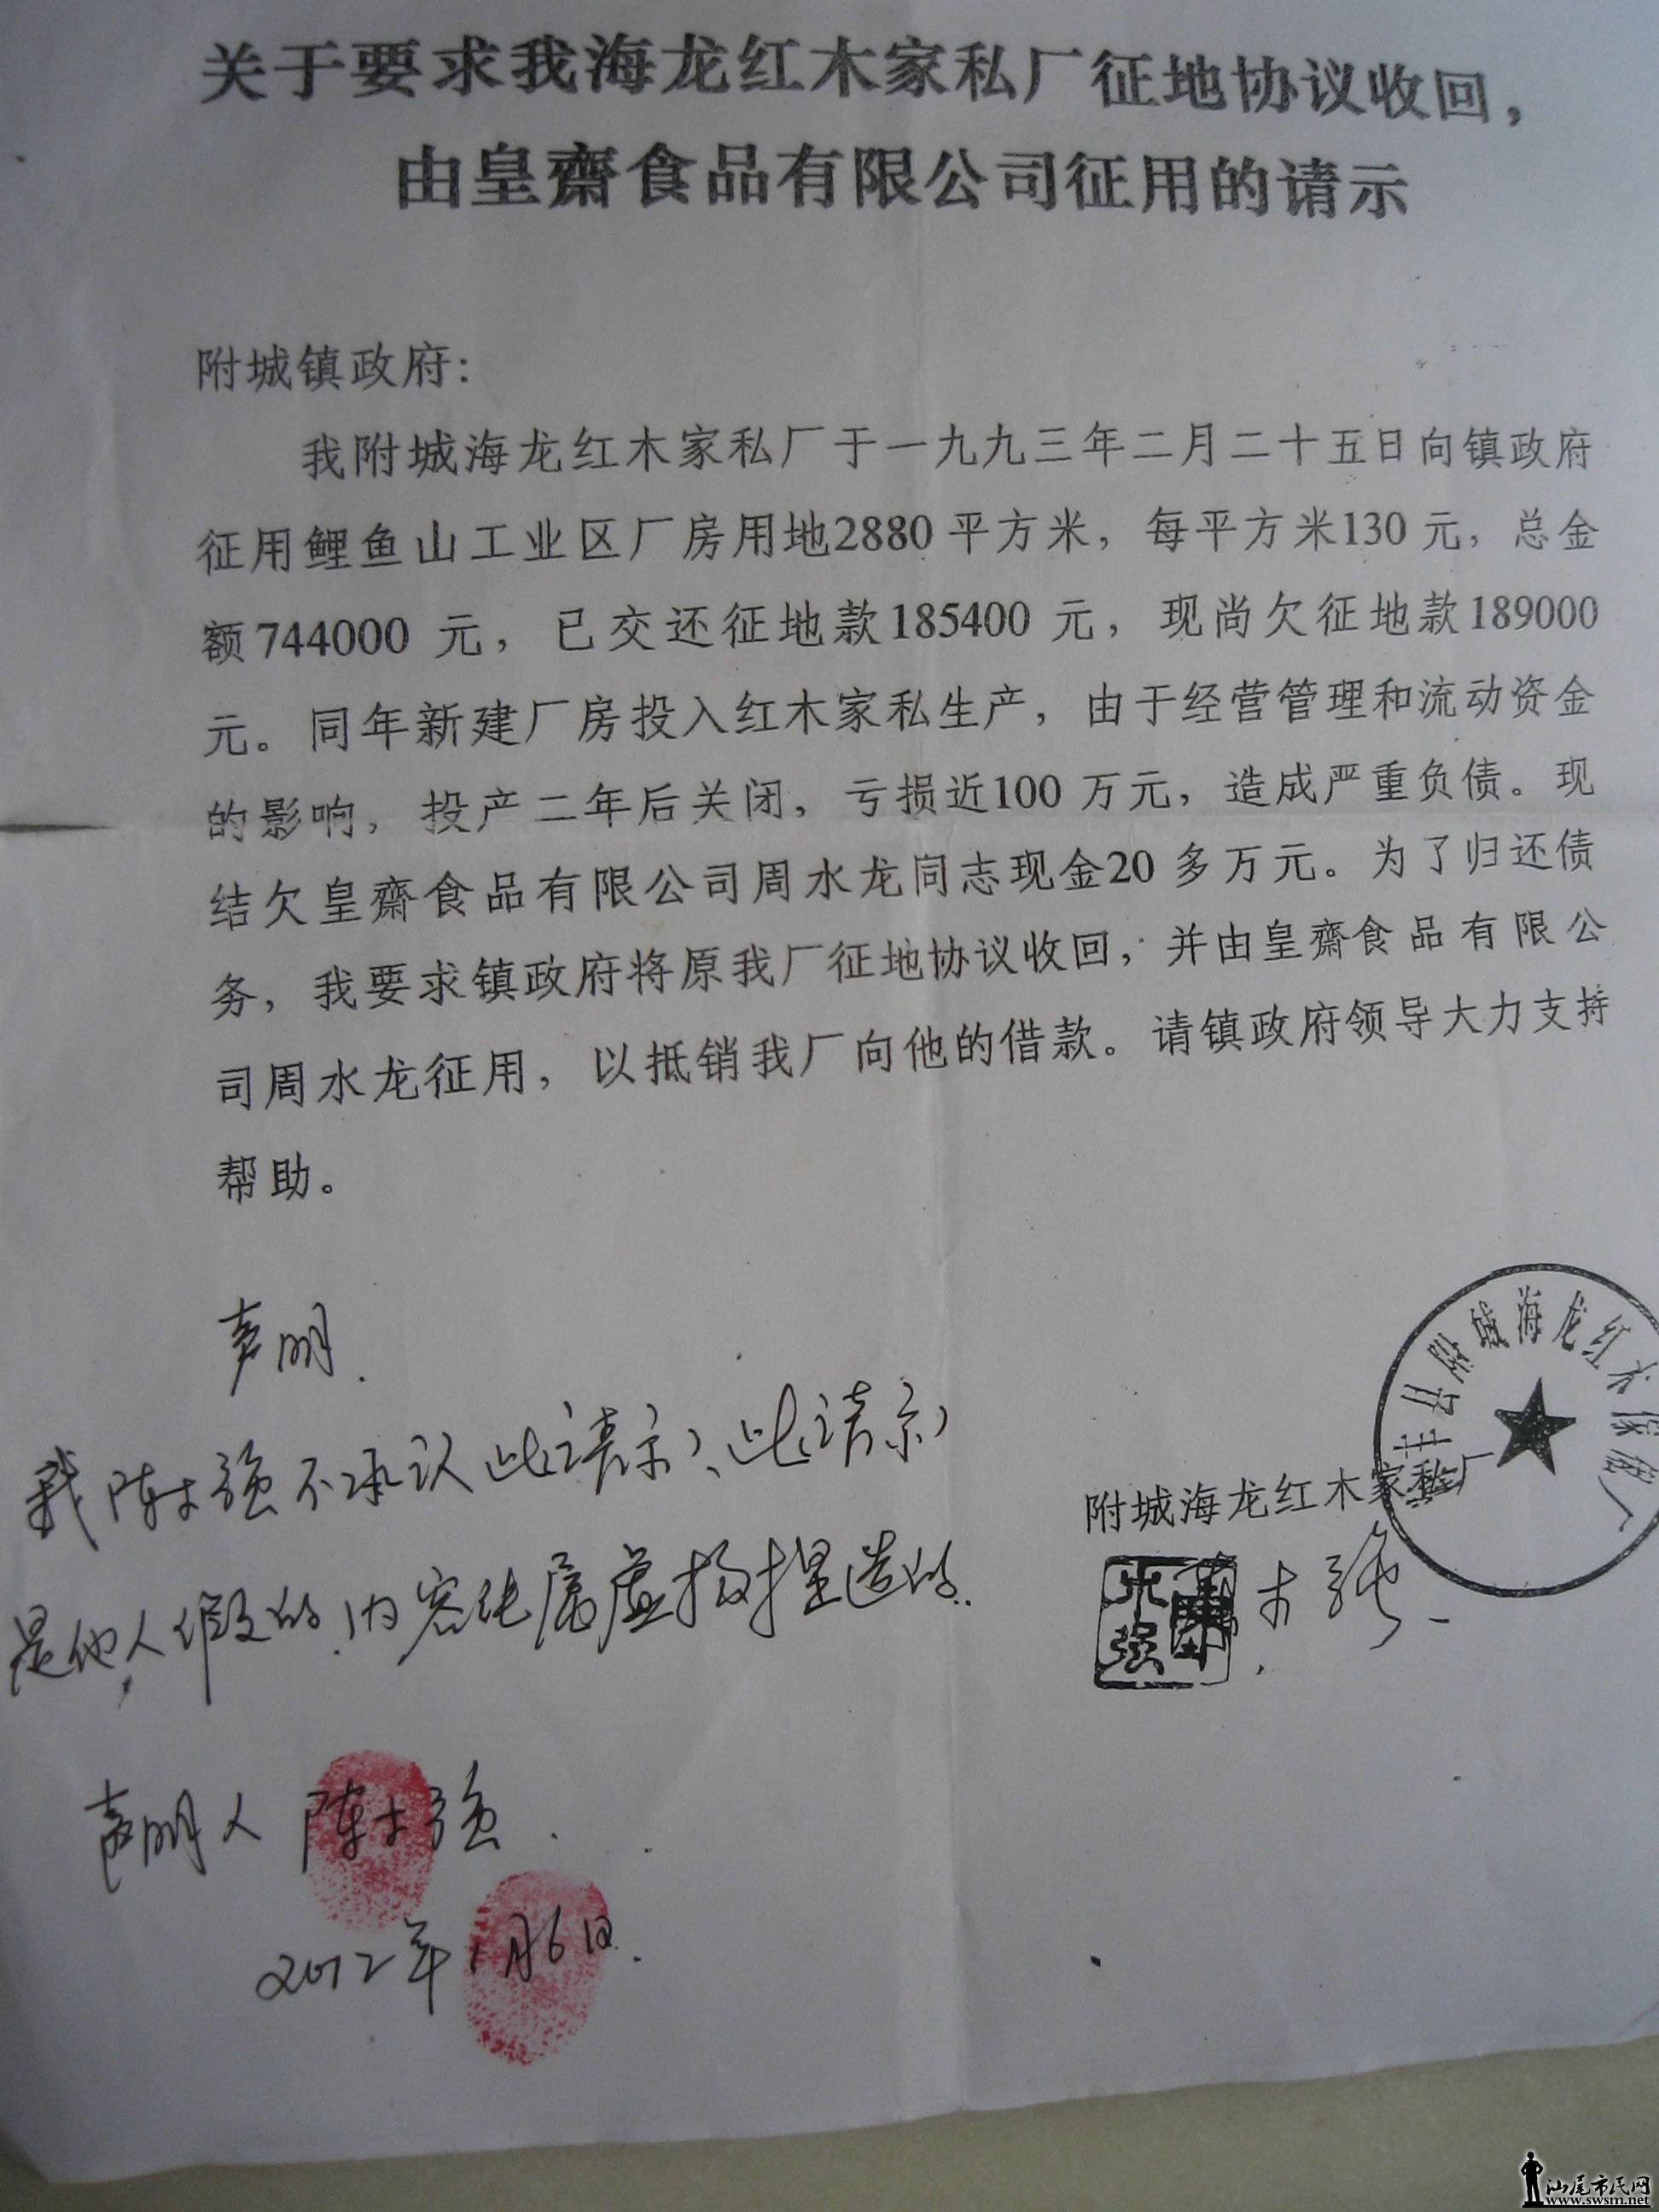 关于要求我海龙红木家私厂征地协议收回，
由皇齋食品有限公司征用的请示
附城镇政府：
我附城海龙红木家私厂于一九九三年二月二十五日向镇政府
征用鲤鱼山工业区厂房用地2880平方米，每平方米130元，总金
额744000元，已交还征地款185400元，现尚欠征地款189000
元。同年新建厂房投入红木家私生产，由于经营管理和流动资金
的影响，投产二年后关闭，亏损近100万元，造成严重负债。现
结欠皇齋食品有限公司周水龙同志现金20多万元。为了归还债
务，我要求镇政府将原我厂征地协议收回，并由皇齋食品有限公
司周水龙征用，以抵销我厂向他的借款。请镇政府领导大力支持
帮助。
声明.
我陈士强不承认此请示、此请示
是他人假的.内容纯属虚构捏造的.
声明人 陈士强.
2012年1月6日.
丰县附城海龙红木傢俬厂
附城海龙红木家私厂
士强
汕尾市民网
www.swsm.net